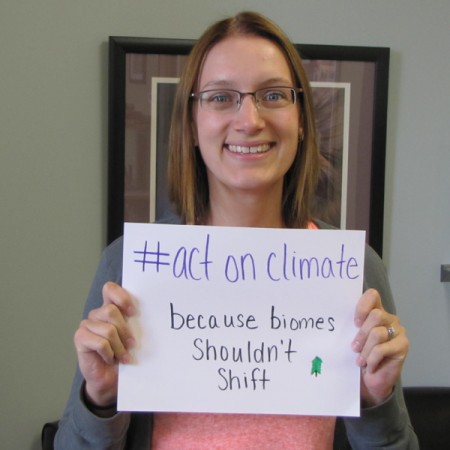 #act on climate
because biomes
Shouldn't
Shift